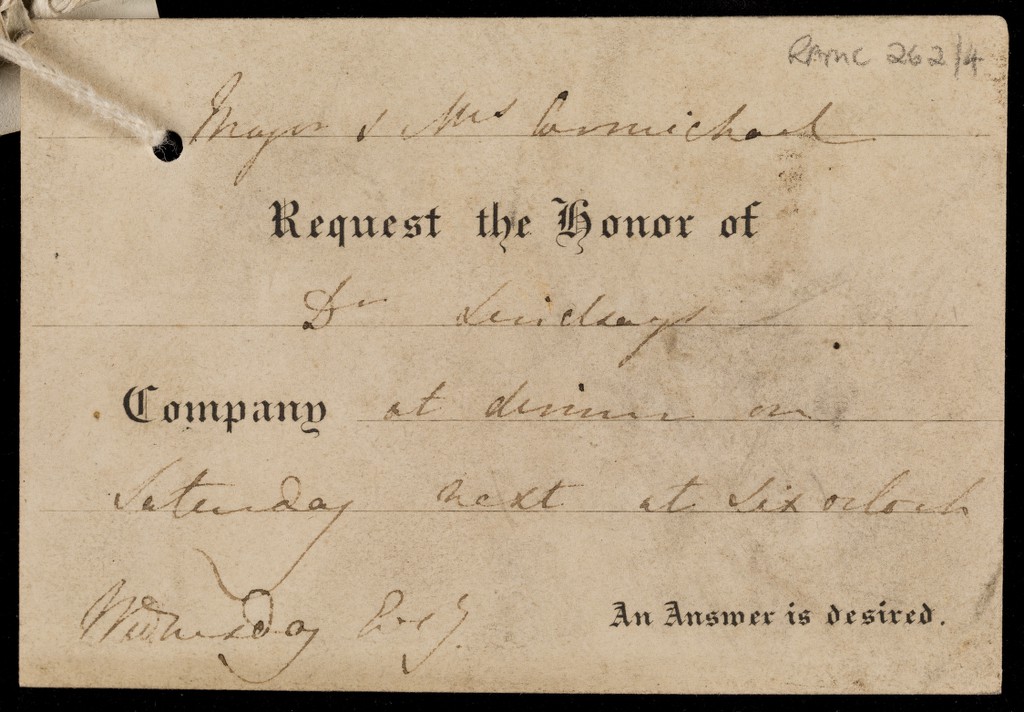 RAMC 262/4
Major & Mrs Carmichael
Request the Honor of
Dr Lindsays
Company at dinner on
Saturday next at Six oclock
Wednesday Evg.
An Answer is desired.